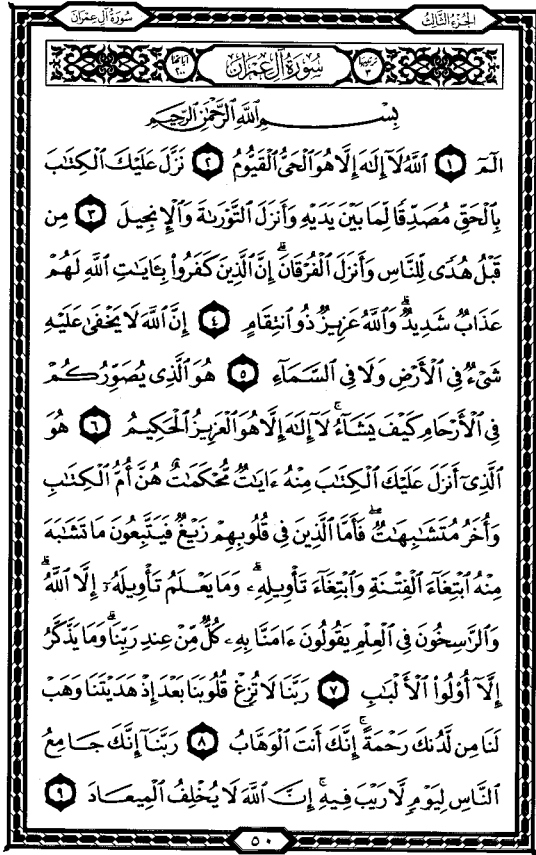 سُورَةُ آلِ عِمْرَان
الجُزْءُ الثَّالِثُ
ترتيبها ٣
سُورَةُ آلِ عِمْرَان
آياتها ٢٠٠
بِسْمِ ٱللَّهِ ٱلرَّحْمَٰنِ ٱلرَّحِيمِ
الٓمٓ ١ ٱللَّهُ لَآ إِلَٰهَ إِلَّا هُوَ ٱلْحَىُّ ٱلْقَيُّومُ ٢ نَزَّلَ عَلَيْكَ ٱلْكِتَٰبَ
بِٱلْحَقِّ مُصَدِّقًا لِّمَا بَيْنَ يَدَيْهِ وَأَنزَلَ ٱلتَّوْرَىٰةَ وَٱلْإِنجِيلَ ٣ مِن
قَبْلُ هُدًى لِّلنَّاسِ وَأَنزَلَ ٱلْفُرْقَانَ ۗ إِنَّ ٱلَّذِينَ كَفَرُوا۟ بِـَٔايَٰتِ ٱللَّهِ لَهُمْ
عَذَابٌ شَدِيدٌ ۗ وَٱللَّهُ عَزِيزٌ ذُو ٱنتِقَامٍ ٤ إِنَّ ٱللَّهَ لَا يَخْفَىٰ عَلَيْهِ
شَىْءٌ فِى ٱلْأَرْضِ وَلَا فِى ٱلسَّمَآءِ ٥ هُوَ ٱلَّذِى يُصَوِّرُكُمْ
فِى ٱلْأَرْحَامِ كَيْفَ يَشَآءُ ۚ لَآ إِلَٰهَ إِلَّا هُوَ ٱلْعَزِيزُ ٱلْحَكِيمُ ٦ هُوَ
ٱلَّذِىٓ أَنزَلَ عَلَيْكَ ٱلْكِتَٰبَ مِنْهُ ءَايَٰتٌ مُّحْكَمَٰتٌ هُنَّ أُمُّ ٱلْكِتَٰبِ
وَأُخَرُ مُتَشَٰبِهَٰتٌ ۖ فَأَمَّا ٱلَّذِينَ فِى قُلُوبِهِمْ زَيْغٌ فَيَتَّبِعُونَ مَا تَشَٰبَهَ
مِنْهُ ٱبْتِغَآءَ ٱلْفِتْنَةِ وَٱبْتِغَآءَ تَأْوِيلِهِۦ ۗ وَمَا يَعْلَمُ تَأْوِيلَهُۥٓ إِلَّا ٱللَّهُ ۗ
وَٱلرَّٰسِخُونَ فِى ٱلْعِلْمِ يَقُولُونَ ءَامَنَّا بِهِۦ كُلٌّ مِّنْ عِندِ رَبِّنَا ۗ وَمَا يَذَّكَّرُ
إِلَّآ أُو۟لُوا۟ ٱلْأَلْبَٰبِ ٧ رَبَّنَا لَا تُزِغْ قُلُوبَنَا بَعْدَ إِذْ هَدَيْتَنَا وَهَبْ
لَنَا مِن لَّدُنكَ رَحْمَةً ۚ إِنَّكَ أَنتَ ٱلْوَهَّابُ ٨ رَبَّنَآ إِنَّكَ جَامِعُ
ٱلنَّاسِ لِيَوْمٍ لَّا رَيْبَ فِيهِ ۚ إِنَّ ٱللَّهَ لَا يُخْلِفُ ٱلْمِيعَادَ ٩
٥٠